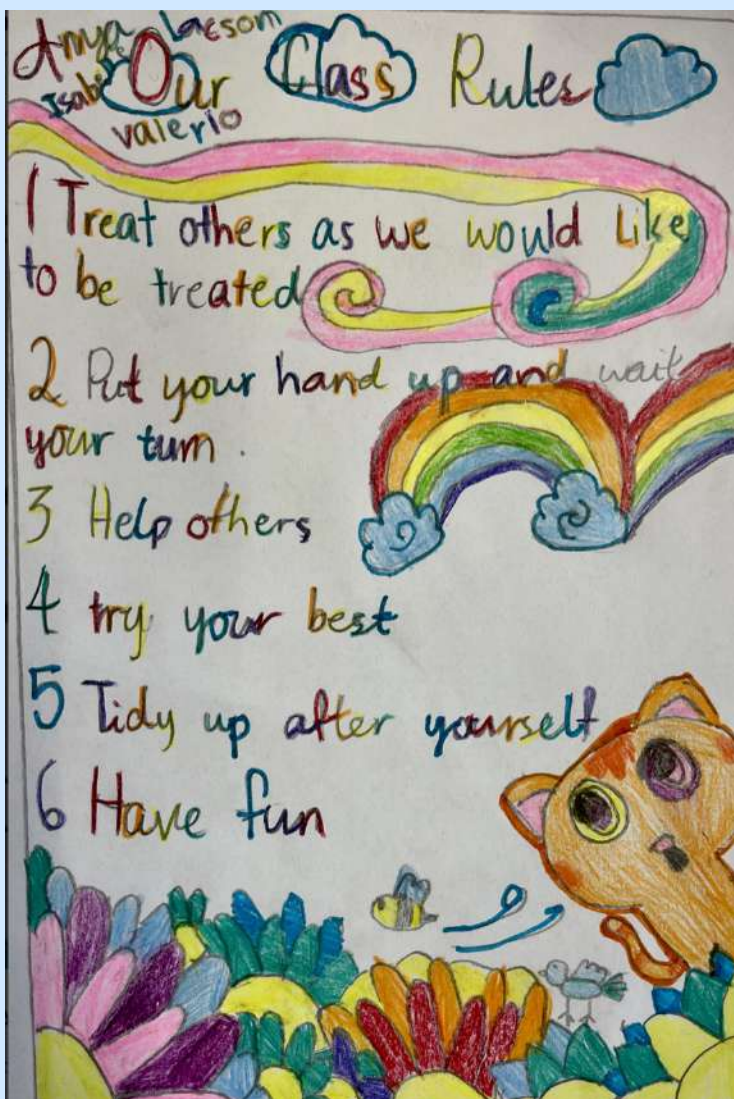 Anya Lacsom
Isabel
Valerio
Our Class Rules
1 Treat others as we would Like
to be treated
2 Put your hand up and wait
your turn .
3 Help others
4 try your best
5 Tidy up after yourself
6 Have fun